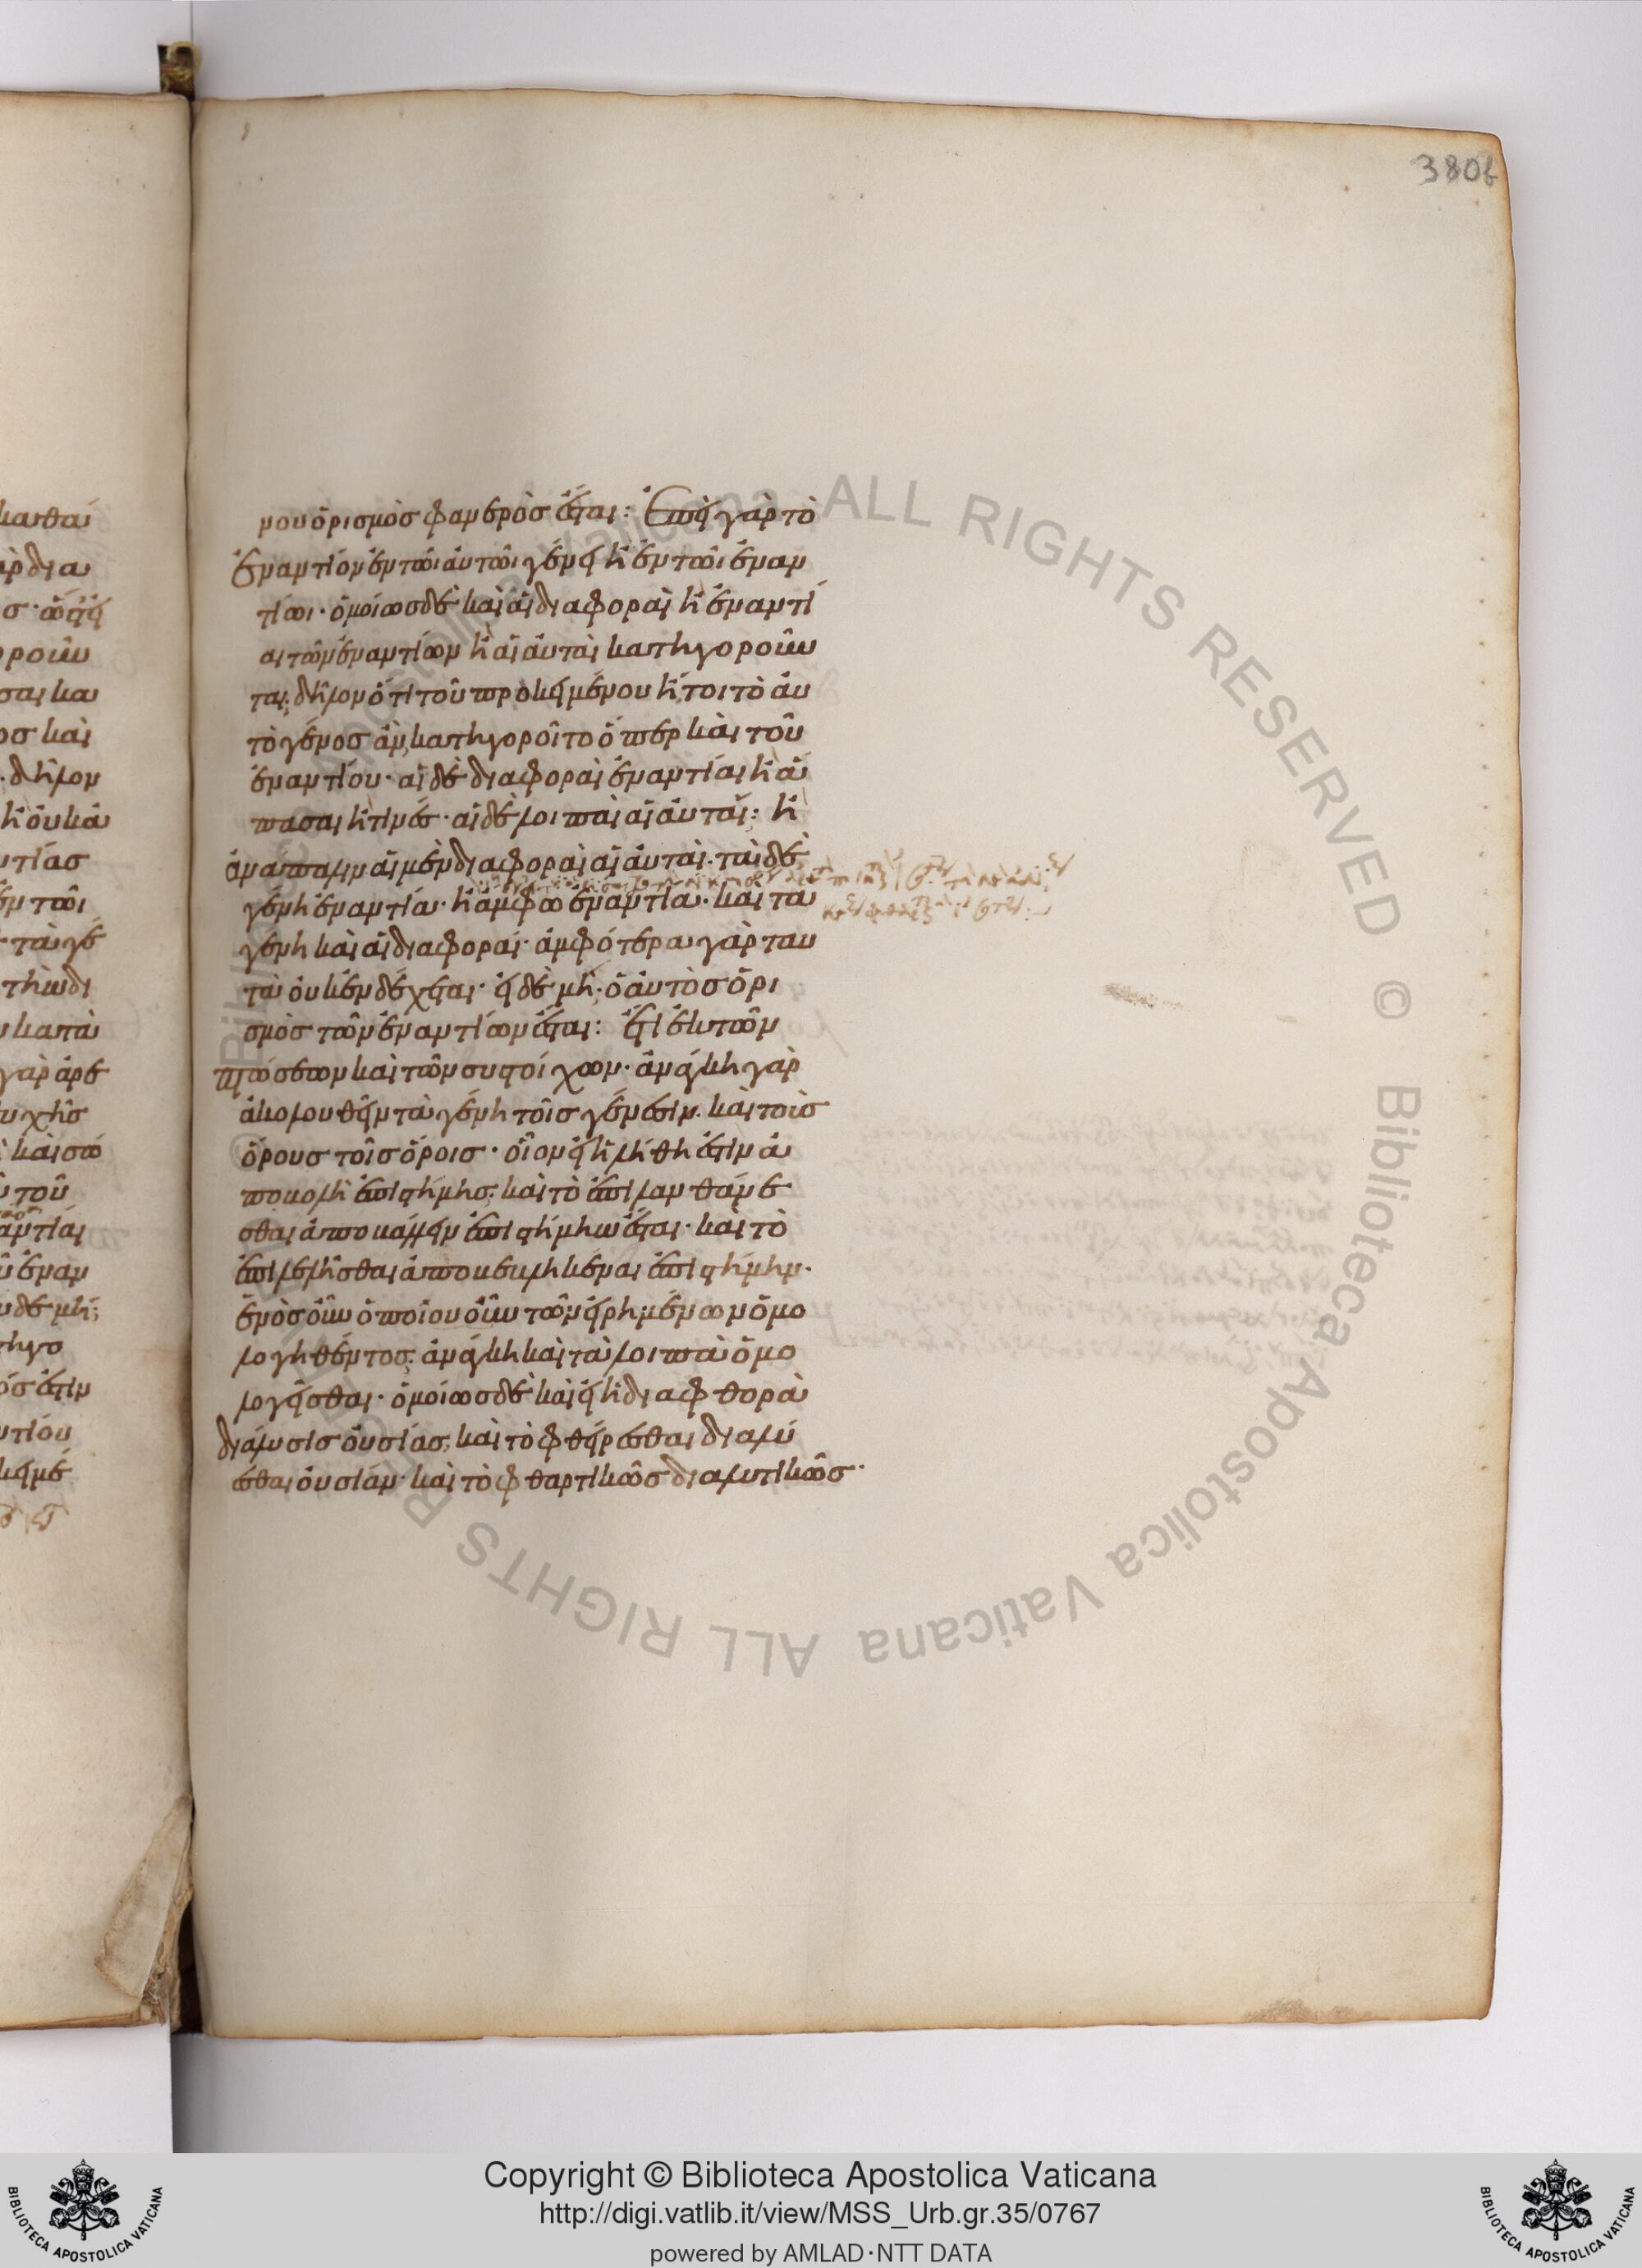 380b
μου ὁρισμὸσ φανερὸσ ἔσται: Ἐπεὶ γὰρ τὸ
ἐναντίον ἐν τῶι ἀυτῶι γένει ἢ ἐν τῶι ἐναν
τίωι· ὁμοίωσ δὲ καὶ ἁι διαφοραὶ ἢ ἐναντί
αι τῶν ἐναντίων ἢ ἁι ἀυταὶ κατηγοροῦν
ται; δῆλον ὅτι τοῦ προκειμένου ἤτοι τὸ ἀυ
τὸ γένοσ ἂν κατηγοροῖτο ὅπερ καὶ τοῦ
ἐναντίου· αἱ δὲ διαφοραὶ ἐναντίαι ἢ ἅ
πασαι ἢ τινέσ· αἱ δὲ λοιπαὶ αἱ ἀυταί: ἢ
ἀνάπαλιν αἱ μὲν διαφοραὶ αἱ ἀυταὶ· τὰ δὲ
γένη ἐναντία· ἢ ἄμφω ἐναντία· καὶ τὰ
γένη καὶ αἱ διαφοραί· ἀμφότερα γὰρ ταυ
τὰ ὀυκ ἐνδέχεται· εἰ δὲ μή· ὁ ἀυτὸσ ὅρι
σμὸσ τῶν ἐναντίων ἔσται: ἔτι ἐκ τῶν
πτώσεων καὶ τῶν συστοίχων· ἀνάγκη γὰρ
ἀκολουθεῖν τὰ γένη τοῖσ γένεσιν· καὶ τοὺσ
ὅρουσ τοῖσ ὅροισ· οἷον εἰ ἡ λήθη ἐστὶν ἀ
ποβολὴ ἐπιστήμησ; καὶ τὸ ἐπιλανθάνε
σθαι ἀποβάλλειν ἐπιστήμην ἔσται· καὶ τὸ
ἐπιλελῆσθαι ἀποβεβληκέναι ἐπιστήμην·
ἑνὸσ οὖν ὁποίου οὖν τῶν εἰρημένων ὁμο
λογηθέντοσ; ἀνάγκη καὶ τὰ λοιπὰ ὁμο
λογεῖσθαι· ὁμοίωσ δὲ καὶ εἰ ἡ διαφθορὰ
διάλυσισ ὀυσίασ; καὶ τὸ φθείρεσθαι διαλύ
εσθαι ὀυσίαν· καὶ τὸ φθαρτικῶσ διαλυτικῶσ·
ALL RIGHTS RESERVED © Biblioteca Apostolica Vaticana
Copyright © Biblioteca Apostolica Vaticana
http://digi.vatlib.it/view/MSS_Urb.gr.35/0767
powered by AMLAD·NTT DATA
BIBLIOTECA APOSTOLICA VATICANA
BIBLIOTECA APOSTOLICA VATICANA